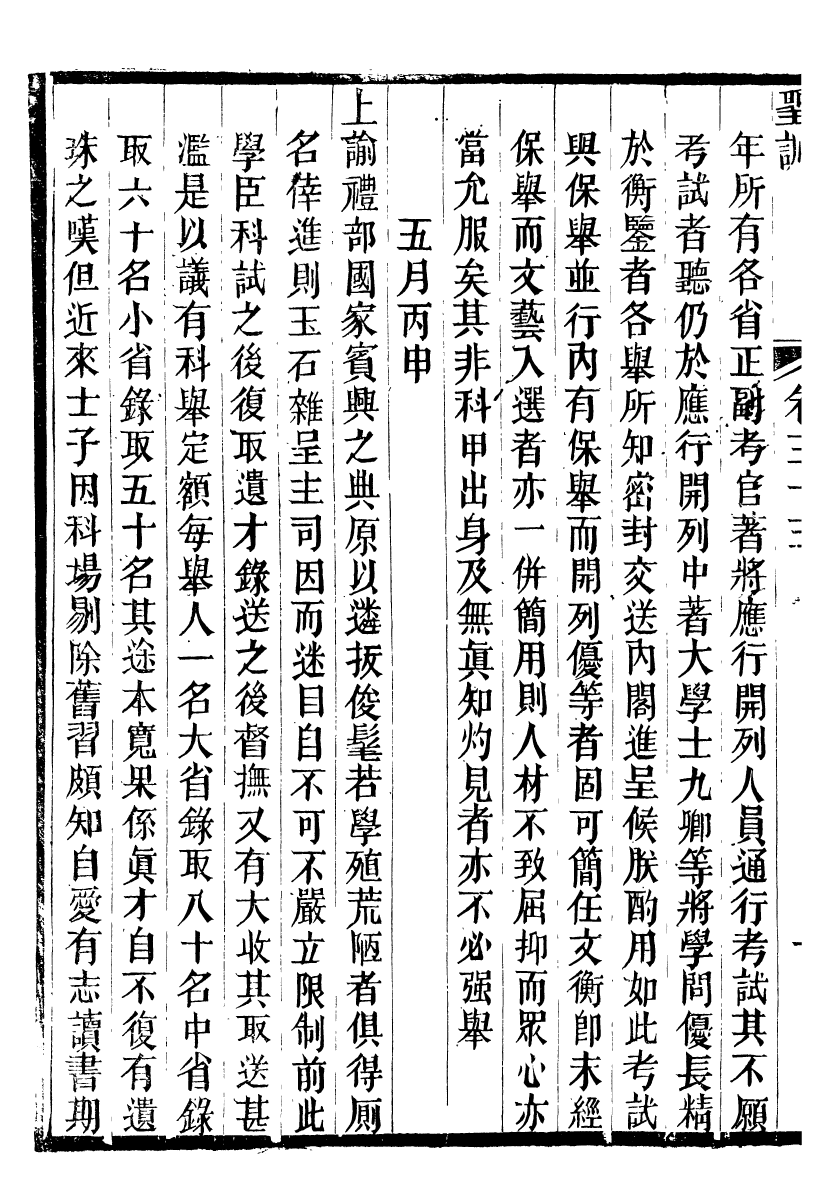 聖訓
卷三十三
年所有各省正副考官著將應行開列人員通行考試其不願
考試者聽仍於應行開列中著大學士九卿等將學問優長精
於衡鑒者各舉所知密封交送內閣進呈候朕酌用如此考試
與保舉並行內有保舉而開列優等者固可簡任文衡卽未經
保舉而文藝入選者亦一併簡用則人材不致屈抑而眾心亦
當允服矣其非科甲出身及無眞知灼見者亦不必强舉
五月丙申
上諭禮部國家賓興之典原以遴拔俊髦若學殖荒陋者俱得厠
名倖進則玉石雜呈主司因而迷目自不可不嚴立限制前此
學臣科試之後復取遺才錄送之後督撫又有大收其取送甚
濫是以議有科舉定額每舉人一名大省錄取八十名中省錄
取六十名小省錄取五十名其途本寬果係眞才自不復有遺
珠之嘆但近來士子因科場剔除舊習頗知自愛有志讀書期